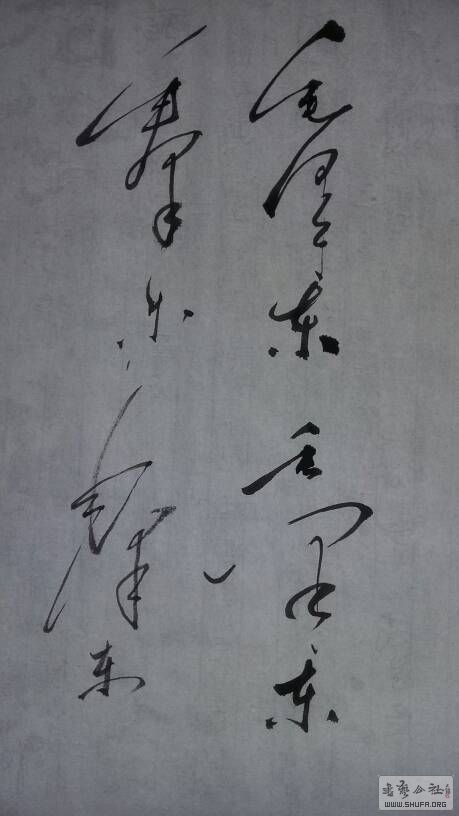 毛泽东 毛泽东
毛泽东 毛泽东
书艺公社
WWW.SHUFA.ORG